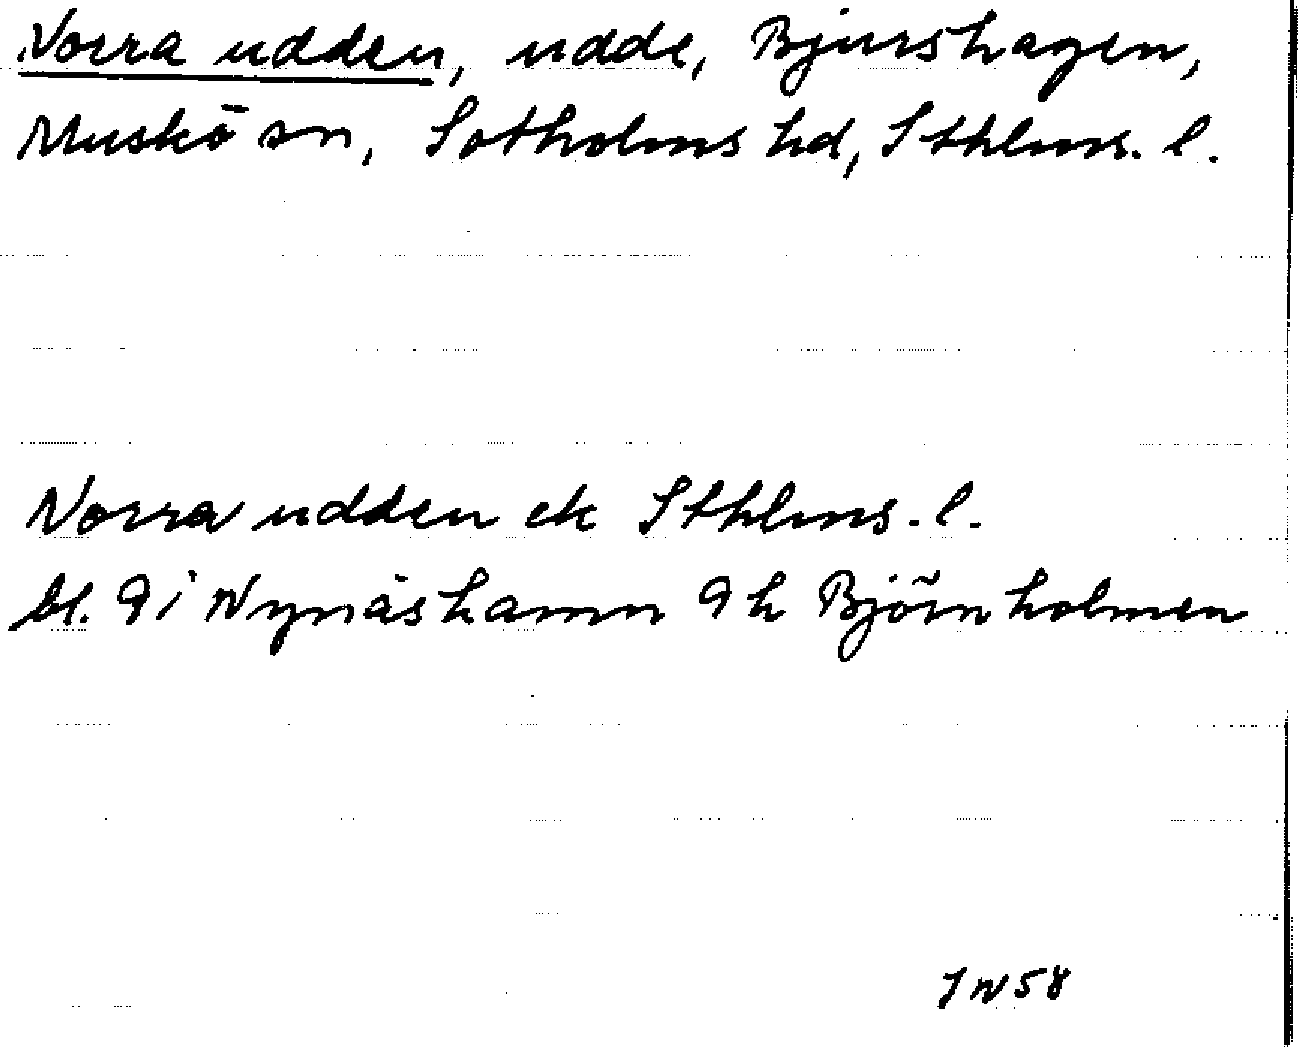 Norra udden, udde, Bjurshagen,
Muskö sn, Sotholms hd, Sthlms. l.
Norra udden ek Sthlms. l.
bl. 9i Nynäshamn 9h Björnholmen
JN58